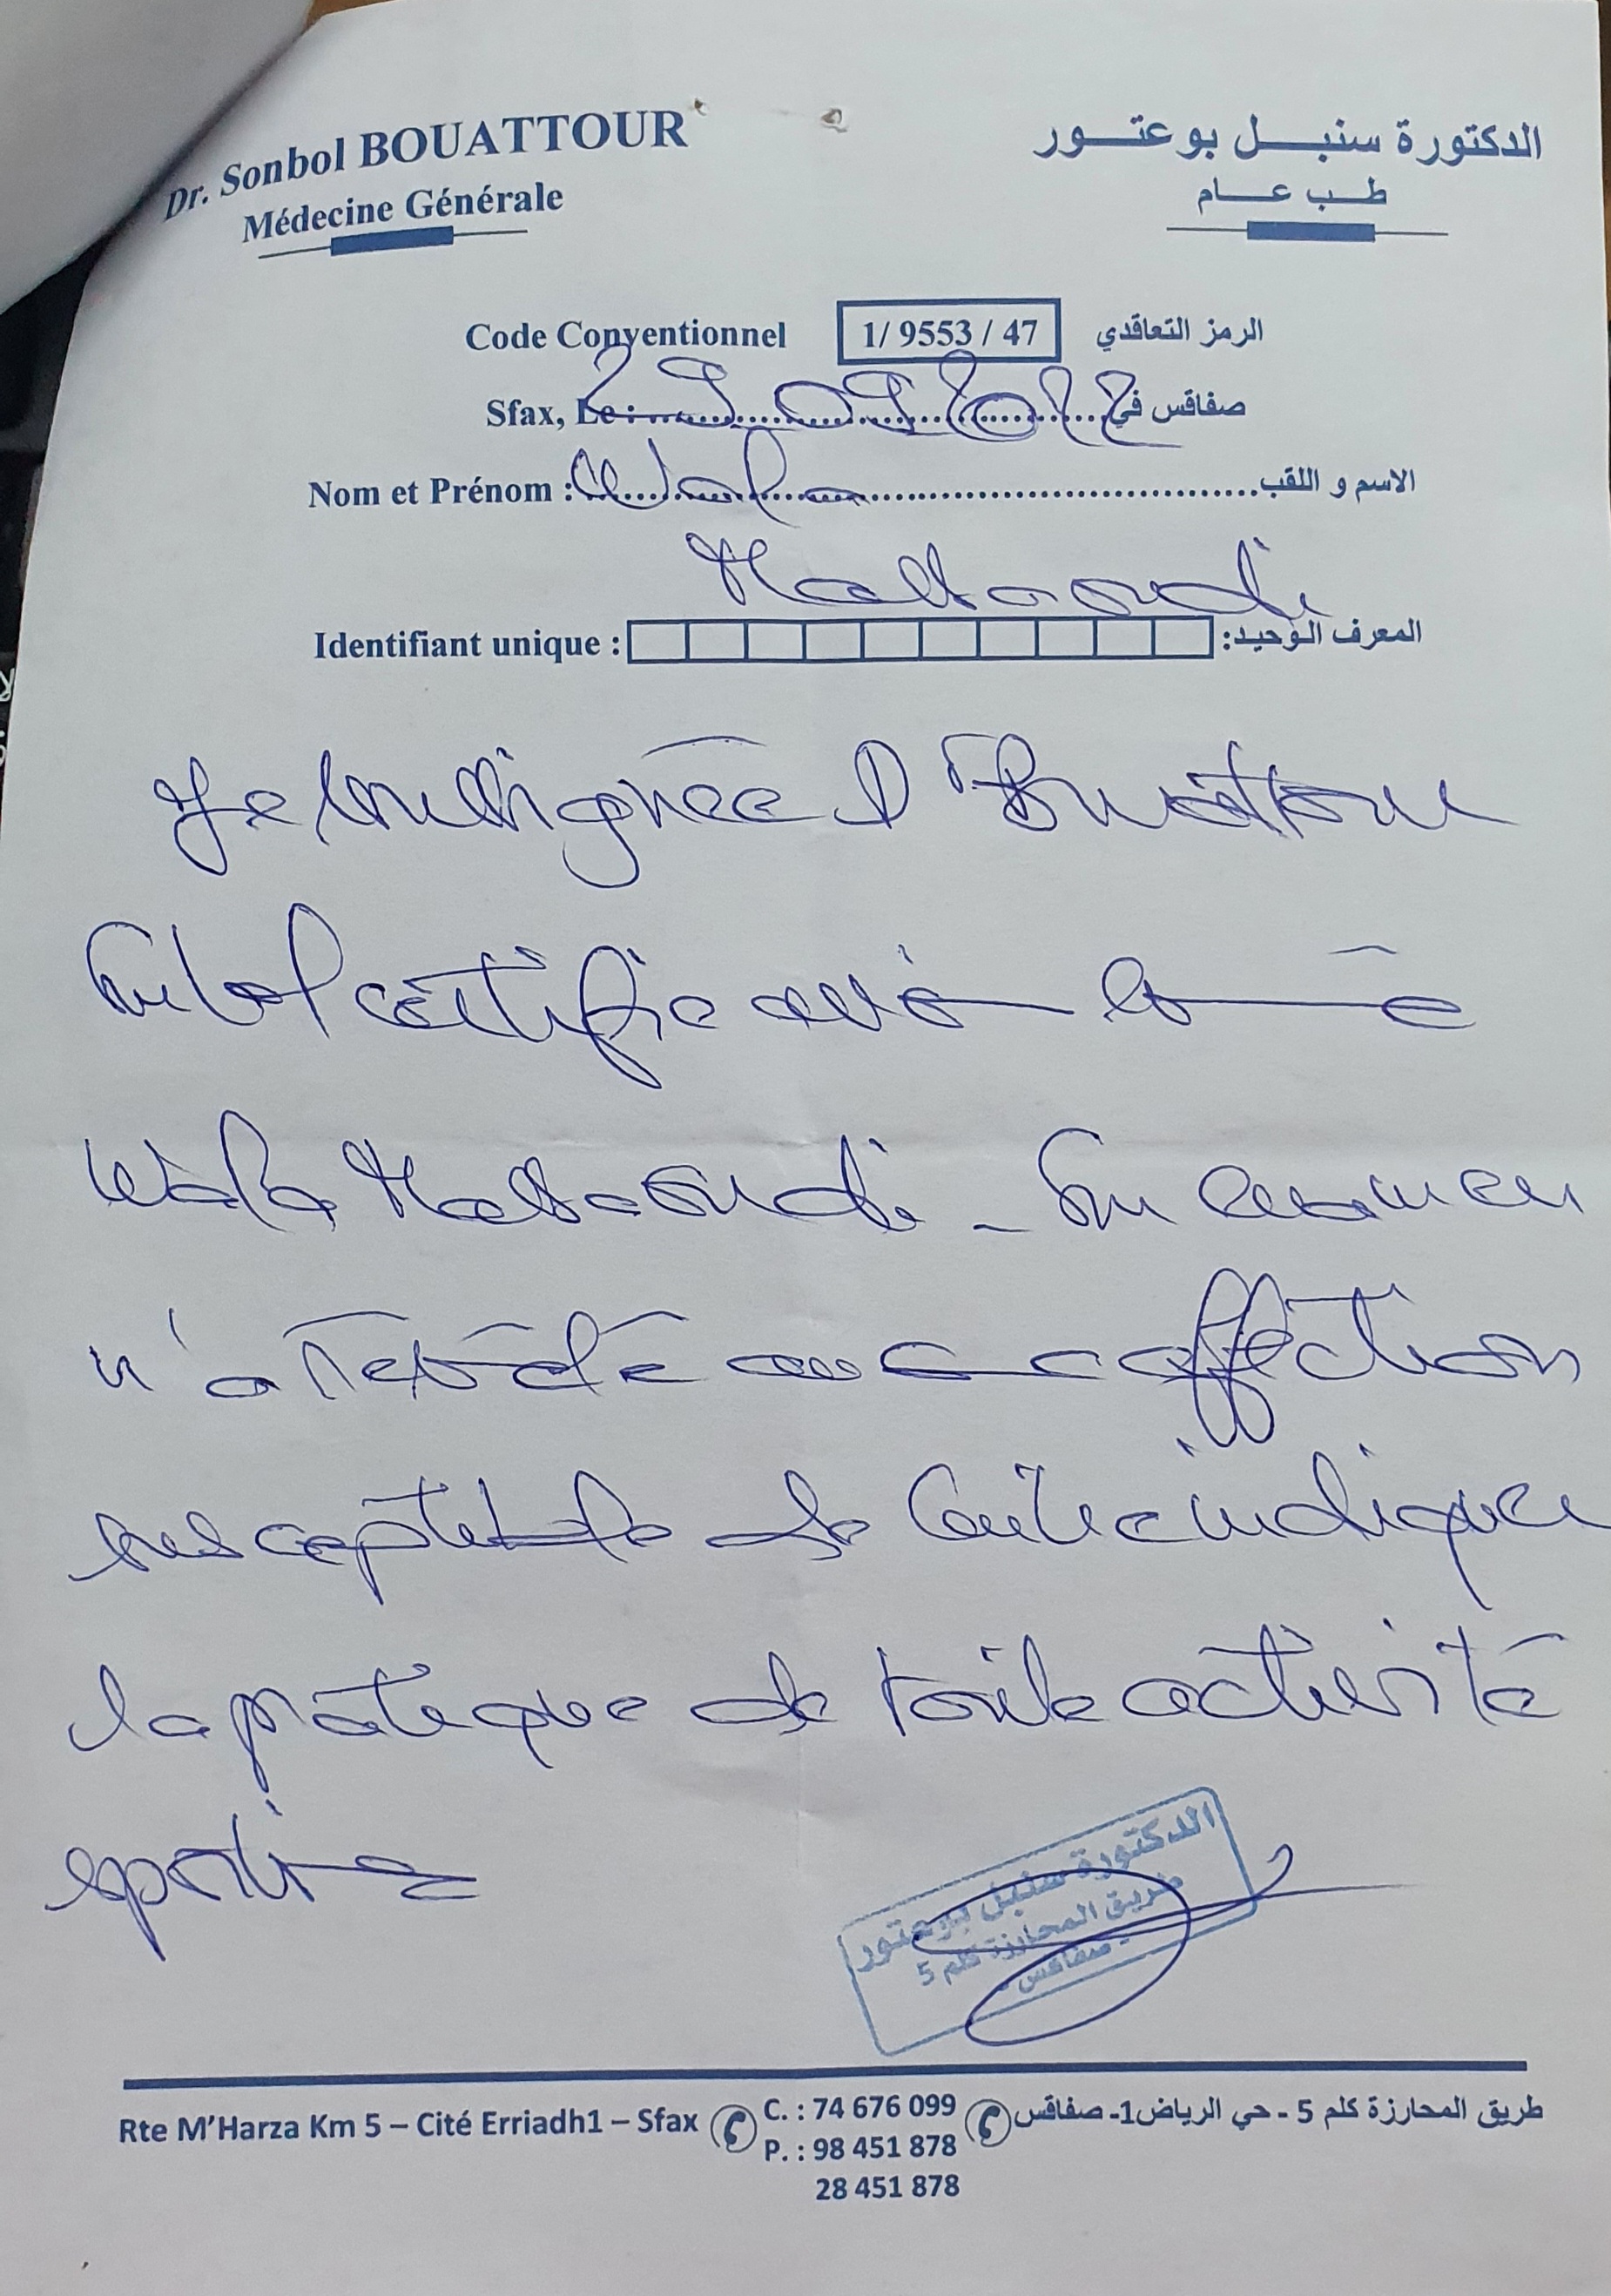 Dr. Sonbol BOUATTOUR
Médecine Générale
الدكتورة سنبل بوعتور
طب عام
Code Conventionnel 1/ 9553 / 47 الرمز التعاقدي
Sfax, Le : صفاقس في
Nom et Prénom : الاسم و اللقب
Identifiant unique : المعرف الوحيد:
Je soussignée Dr Bouattour
Sonbol certifie avoir examiné
n'a révélé aucune affection
susceptible de contreindiquer
la pratique de toute activité
sportive
الدكتورة سنبل بوعتور
طريق المحارزة كلم 5
صفاقس
Rte M'Harza Km 5 – Cité Erriadh1 – Sfax
C. : 74 676 099
P. : 98 451 878
28 451 878
طريق المحارزة كلم 5 - حي الرياض1- صفاقس